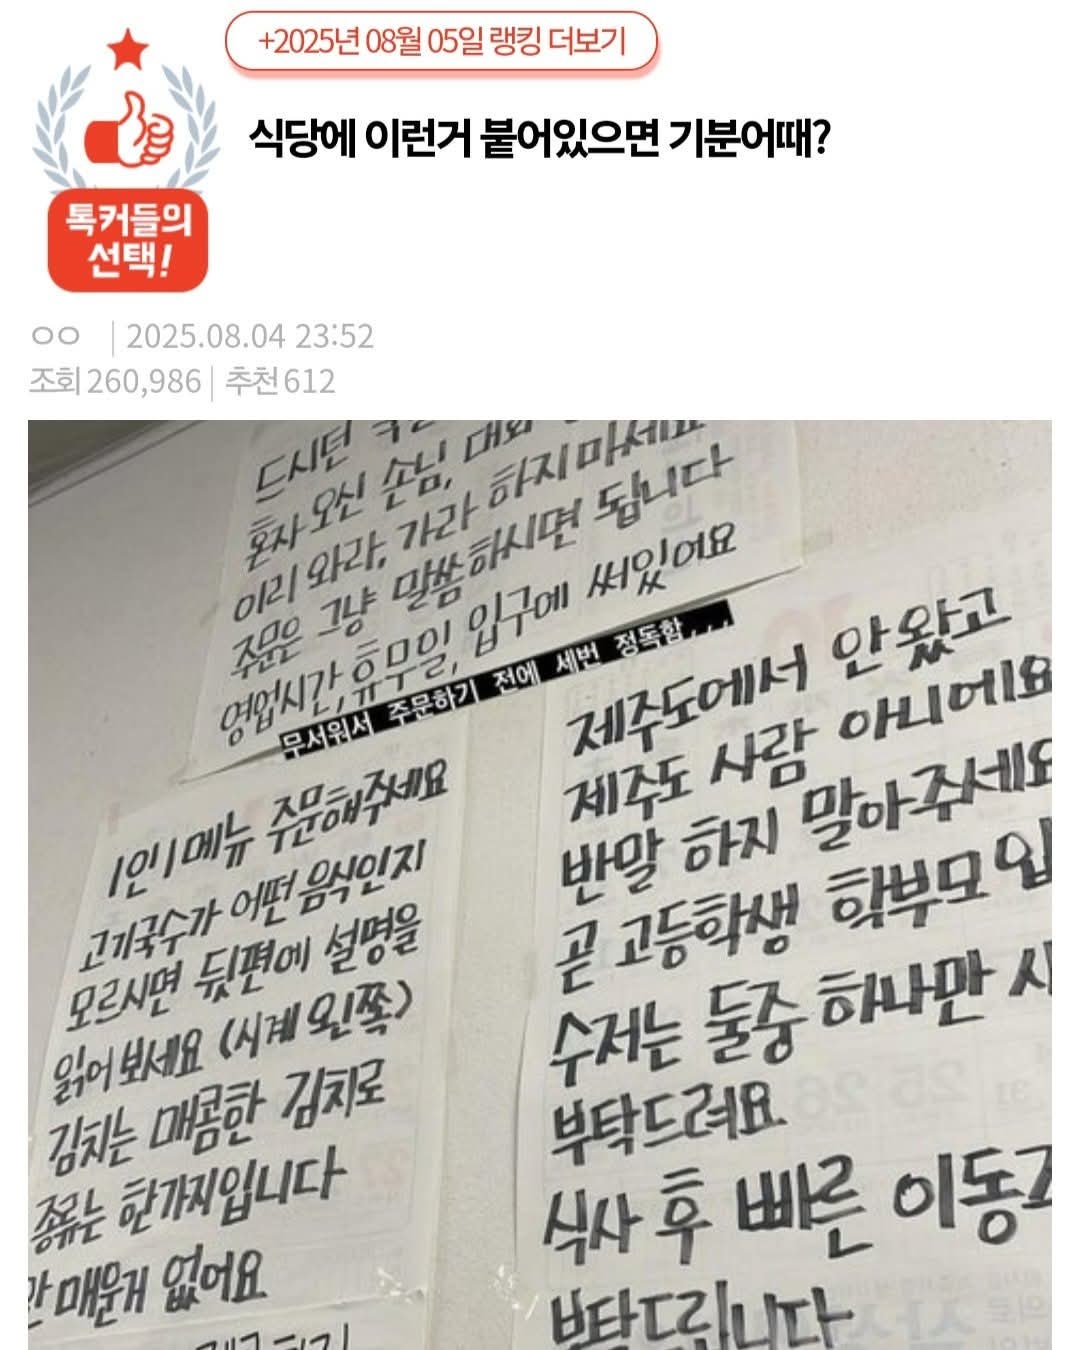 +2025년 08월 05일 랭킹 더보기
식당에 이런거 붙어있으면 기분어때?
톡커들의
선택!
ㅇㅇ | 2025.08.04 23:52
조회 260,986 | 추천 612
드시던
혼자 오신 손님, 대화
이리 와라, 가라 하지마세요
주문은 그냥 말씀하시면 됩니다
영업시간, 휴무일, 입구에 써있어요
무서워서 주문하기 전에 세번 정독함,,,
1인 1메뉴 주문해주세요
고기국수가 어떤 음식인지
모르시면 뒷편에 설명을
읽어보세요 (시계 왼쪽)
김치는 매콤한 김치로
종류는 한가지입니다
안 매운게 없어요
제주도에서 안 왔고
제주도 사람 아니에요
반말 하지 말아주세요
곧 고등학생 학부모 입
수저는 둘중 하나만 사
부탁드려요
식사 후 빠른 이동
부탁드립니다
25 26
31
27